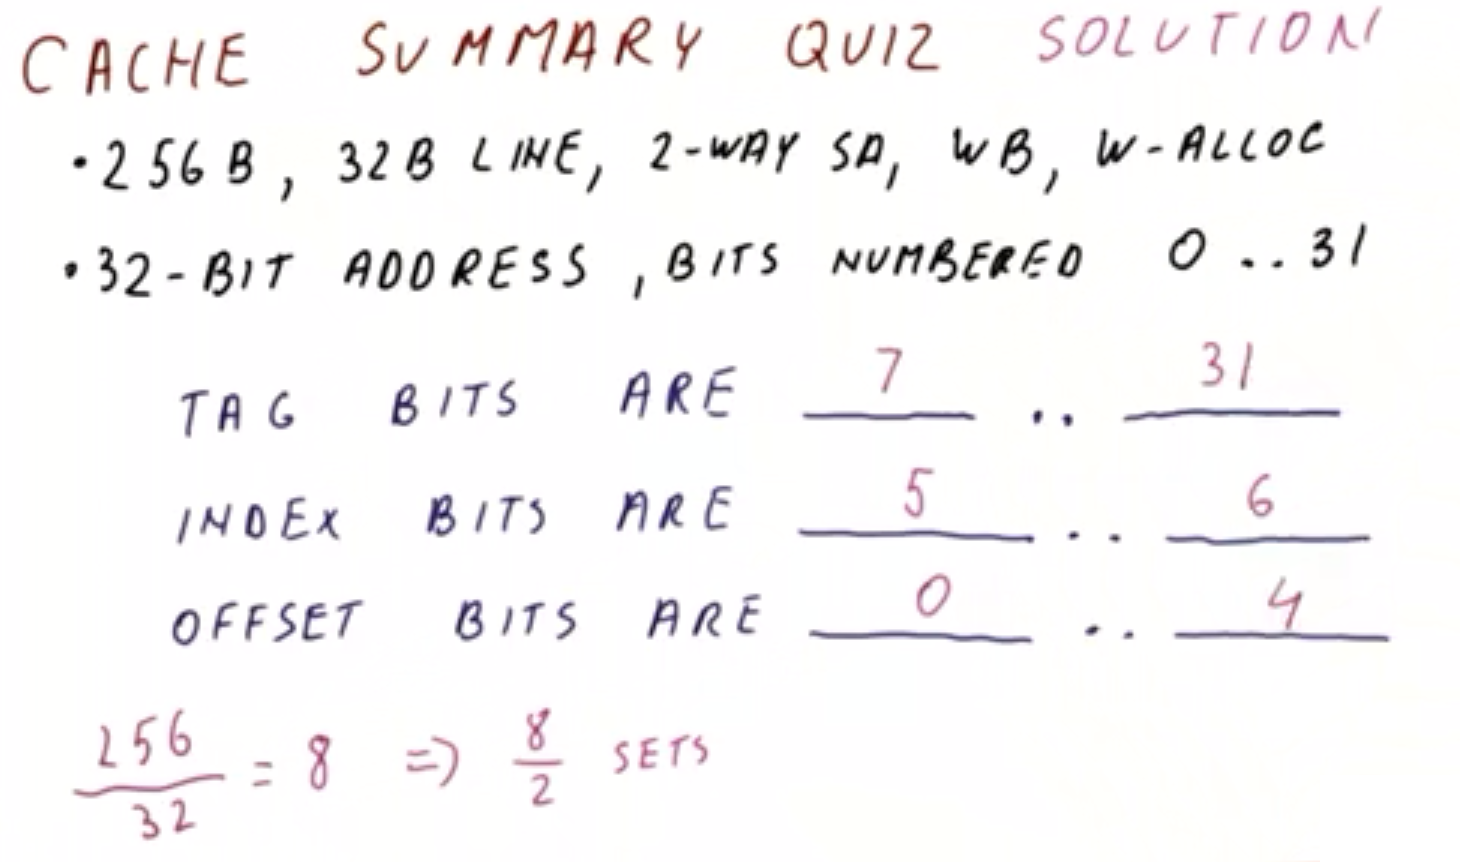 CACHE SUMMARY QUIZ SOLUTION
• 256 B, 32B LINE, 2-WAY SA, WB, W-ALLOC
• 32-BIT ADDRESS, BITS NUMBERED 0..31
TAG BITS ARE 7 .. 31
INDEX BITS ARE 5 .. 6
OFFSET BITS ARE 0 .. 4
256/32 = 8 => 8/2 SETS